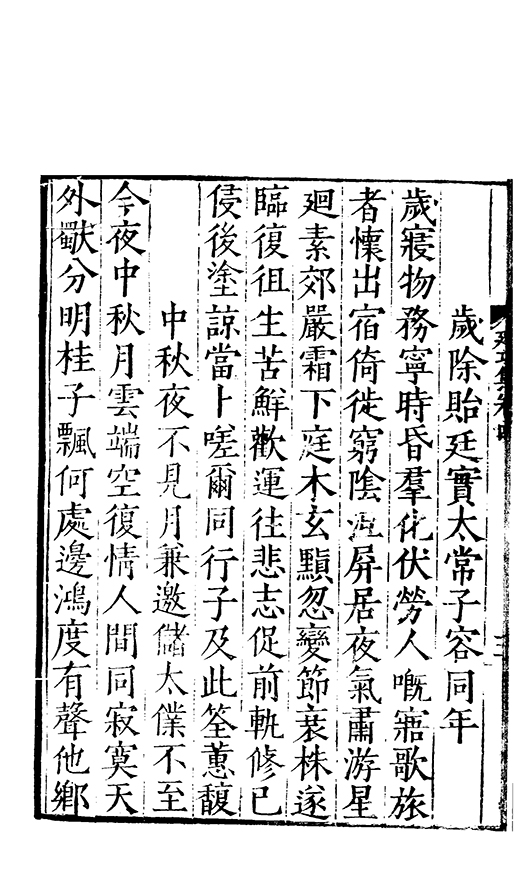 歲除貽廷實太常子容同年
歲寢物務寧時昏羣化伏勞人嘅寤歌旅
者懷出宿倚徙窮陰沍屏居夜氣肅游星
廻素郊嚴霜下庭木玄顥忽變節衰株遂
臨復徂生苦鮮歡運往悲志促前軌修已
侵後塗諒當卜嗟爾同行子及此筌蕙馥
中秋夜不見月兼邀儲太僕不至
今夜中秋月雲端空復情人間同寂寞天
外獸分明桂子飄何處邊鴻度有聲他鄉